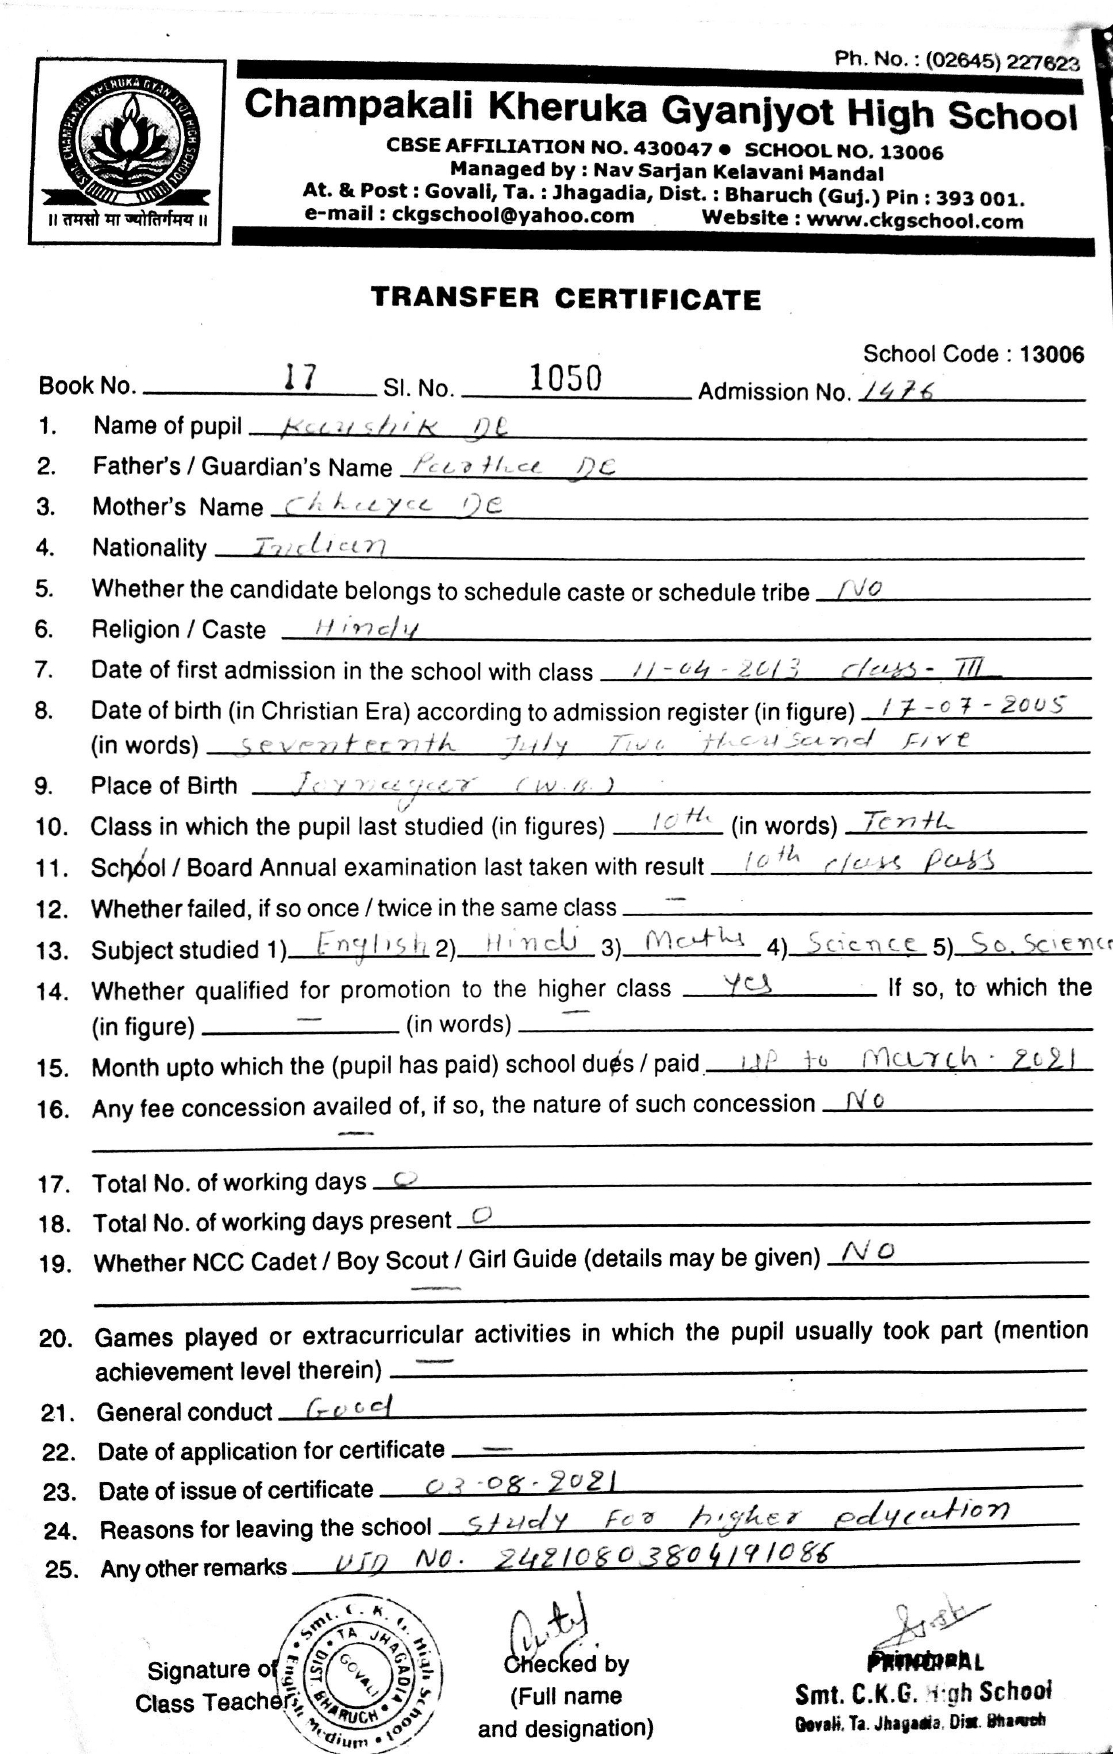 Ph. No. : (02645) 227623
SMT. CHAMPAKALI KHERUKA GYANJYOT HIGH SCHOOL
॥ तमसो मा ज्योतिर्गमय ॥
Champakali Kheruka Gyanjyot High School
CBSE AFFILIATION NO. 430047 ● SCHOOL NO. 13006
Managed by : Nav Sarjan Kelavani Mandal
At. & Post : Govali, Ta. : Jhagadia, Dist. : Bharuch (Guj.) Pin : 393 001.
e-mail : ckgschool@yahoo.com Website : www.ckgschool.com
TRANSFER CERTIFICATE
School Code : 13006
Book No. 17 Sl. No. 1050 Admission No. 1476
1. Name of pupil Kaushik DE
2. Father's / Guardian's Name Partha DE
3. Mother's Name Chhaya DE
4. Nationality Indian
5. Whether the candidate belongs to schedule caste or schedule tribe NO
6. Religion / Caste Hindy
7. Date of first admission in the school with class 11-04-2013 class- III
8. Date of birth (in Christian Era) according to admission register (in figure) 17-07-2005
(in words) seventeenth July Two thousand Five
9. Place of Birth Joynagar (W.B.)
10. Class in which the pupil last studied (in figures) 10th (in words) Tenth
11. School / Board Annual examination last taken with result 10th class pass
12. Whether failed, if so once / twice in the same class –
13. Subject studied 1) English 2) Hindi 3) Maths 4) Science 5) So. Science
14. Whether qualified for promotion to the higher class yes If so, to which the
(in figure) – (in words) –
15. Month upto which the (pupil has paid) school dues / paid UP to March - 2021
16. Any fee concession availed of, if so, the nature of such concession NO
–
17. Total No. of working days 0
18. Total No. of working days present 0
19. Whether NCC Cadet / Boy Scout / Girl Guide (details may be given) NO
–
20. Games played or extracurricular activities in which the pupil usually took part (mention
achievement level therein) –
21. General conduct Good
22. Date of application for certificate –
23. Date of issue of certificate 03-08-2021
24. Reasons for leaving the school study For higher edycation
25. Any other remarks UID NO. 24210803804191086
Smt. C. K. G. High School • English Medium •
TA JHAGADIA • DIST. BHARUCH •
GOVALI
Signature of
Class Teacher
Checked by
(Full name
and designation)
PRINCIPAL
Smt. C.K.G. High School
Govali, Ta. Jhagadia, Dist. Bharuch